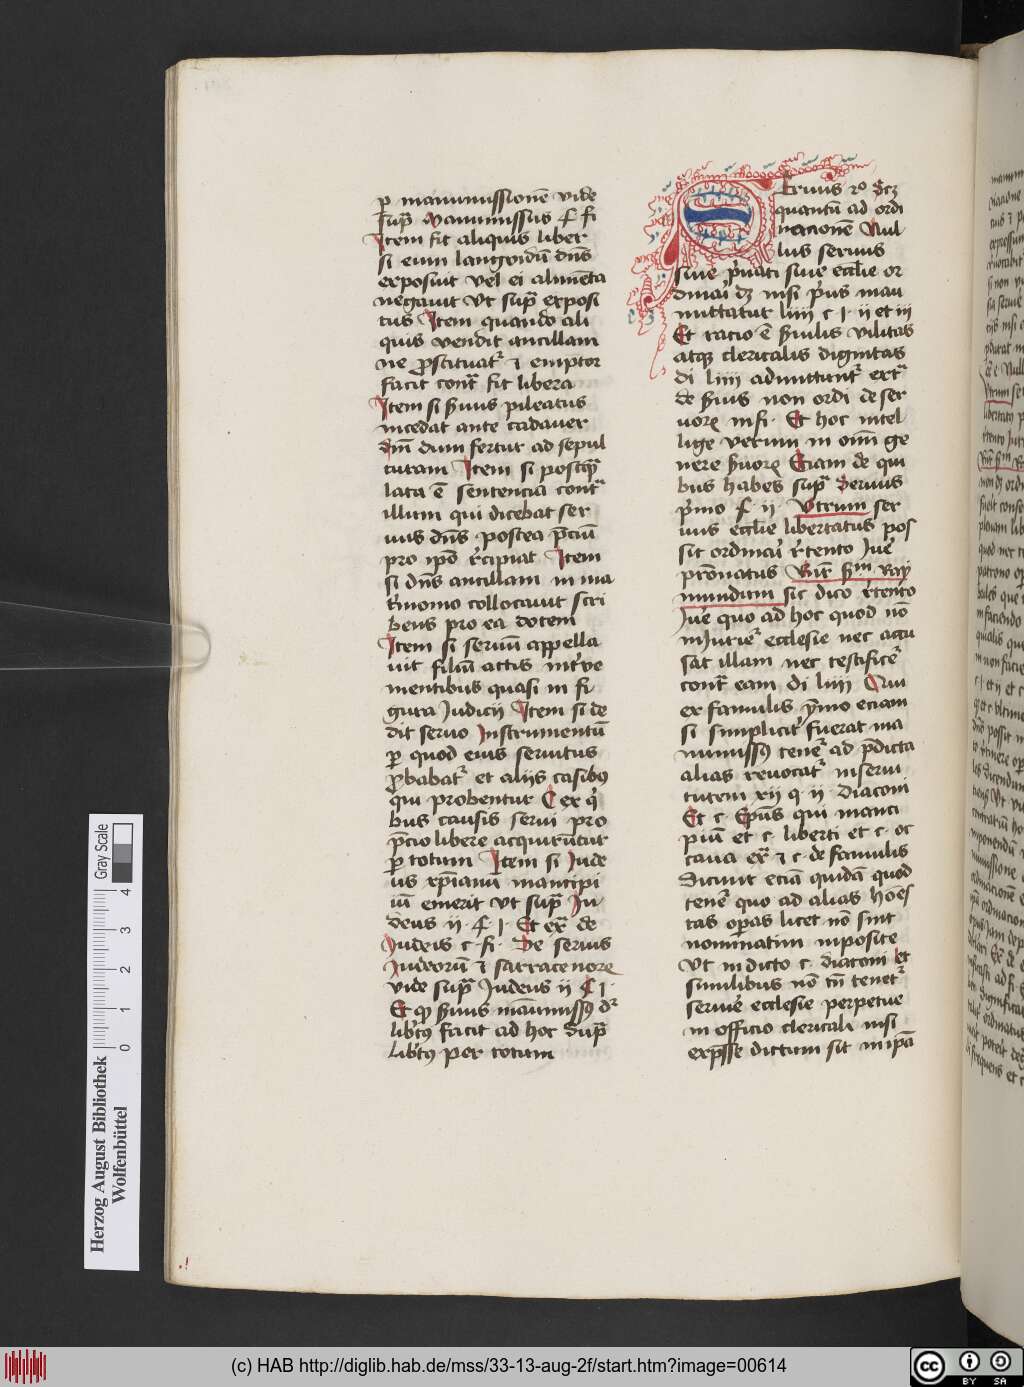 ꝑ manumissionē vide
supͣ Manumissus ſ fi
Item fit aliquis liber
si eum langwidū dn̄s
exposuit vel ei alimēta
negauit vt supͣ exposi
tus Item quando ali
quis vendit ancillam
ne ꝓstituatᷣ ⁊ emptor
facit contᷓ fit libera
Item si ẜuus pileatus
incedat ante cadauer
dn̄i dum fertur ad sepul
turam Item si postqᷓ
lata ē sentencia contᷓ
illum qui dicebat ser
uus dn̄s postea p̄ciū
pro ip̄o r̄cipiat Item
si dn̄s ancillam in ma
tr̄monio collocauit scri
bens pro ea dotem
Item si seruū appella
uit filiū actis int̄ve
nientibus quasi in fi
gura Iudicij Item si de
dit seruo Instrumentū
ꝑ quod eius seruitus
ꝓbabatᷣ et aliis casibꝯ
qui probentur C ex qͥ
bus causis serui pro
p̄cio libere acquirūtur
ꝑ totum Item si Iude
us xp̄ianū mancipi
um emerit vt supͣ Iu
deus ii ſ I Et exᷓ de
Iudeis c fi De seruis
Iudeorū ⁊ sarracenorꝝ
vide supͣ Iudeus ii ſ I
Et ꝙ ẜuus manumissꝯ dᷣ
lib̄tꝯ facit ad hoc supͣ
lib̄tꝯ per totum
Seruus 2o Scꝫ
quantū ad ordi
nacionē Nul
lus seruus
siue p̄uati siue eccl̄ie or
dinari dꝫ nisi p̄us manu
mittatur liiii c I ii et iii
Et racio ē ẜuilis vilitas
atqꝫ clericalis dignitas
di liiii admittuntᷣ extᷓ
de ẜuis non ordi de ser
uorꝝ in fi Et hoc intel
lige verum in om̄i ge
nere ẜuorꝝ Eciam de qui
bus habes supͣ Seruus
pͥmo ſ ii Vtrum ser
uus eccl̄ie libertatus pos
sit ordinari r̄tento Iu͛e
pr̄onatus Rn̄r ẜm Ray
mundum sic dico r̄tento
Iu͛e quo ad hoc quod nō
iniurietᷣ ecclesie nec accu
sat illam nec testificetᷣ
contᷓ eam di liiii Qui
ex famulis ymo eciam
si simplicit͛ fuerat ma
numissꝯ tenetᷣ ad p̄dicta
alias reuocatᷣ in serui
tutem xii q ii diaconi
Et c Ep̄us qui manci
pium et c liberti et c oc
caua exᷓ ⁊ c de famulis
Dicunt eciā quidā quod
tenetᷣ quo ad alias hones
tas oꝑas licet nō sint
nominatim inposite
Vt in dicto c diaconi Et
similibus nō tn̄ tenetᷣ
seruir͛ ecclesie perpetue
in officio clericali nisi
exp̄sse dictum sit in ip̄a
Herzog August Bibliothek
Wolfenbüttel
Gray Scale
0 1 2 3 4
(c) HAB http://diglib.hab.de/mss/33-13-aug-2f/start.htm?image=00614
cc BY SA